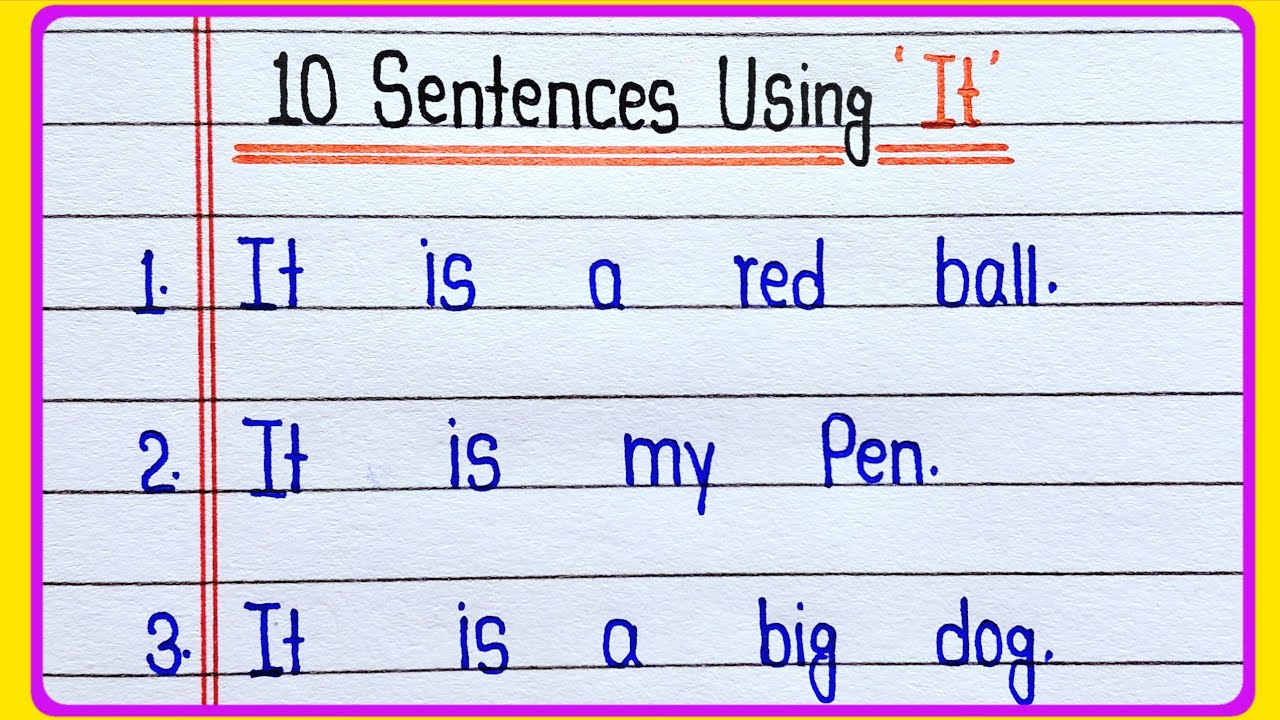 10 Sentences Using 'It'
1. It is a red ball.
2. It is my Pen.
3. It is a big dog.